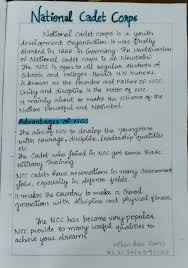 National Cadet Corps
National Cadet Corps is a youth
development Organisation. It was firstly
started in 1666 in Germany. The Headquarters
of National Cadet Corps is at New Delhi
The NCC is open to all regular students of
Schools and colleges. Pandit H.N Kunzru
is known as the Founder or Father of NCC.
Unity and discipline is the Motto of NCC
It mainly aims to make the citizens of the
Nation Powerful and Motivated.
Advantages of NCC:
The aim of NCC to develop the Youngsters
with courage, discipline, Leadership qualities
etc
The Cadet who joined in NCC got Some Basic
Military Training
NCC cadets have reservations in many Government
jobs, especially in defense fields
It makes the country to make a Good
generations with discipline and physical fitness.
The NCC has become very popular.
NCC provide so many useful qualities to
achieve your dreams